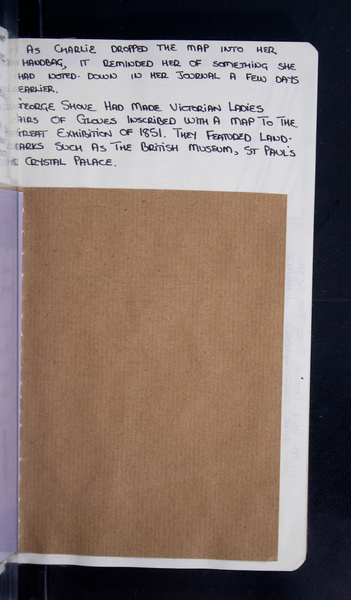 AS CHARLIE DROPPED THE MAP INTO HER
HANDBAG, IT REMINDED HER OF SOMETHING SHE
HAD NOTED DOWN IN HER JOURNAL A FEW DAYS
EARLIER.
GEORGE SHOVE HAD MADE VICTORIAN LADIES
PAIRS OF GLOVES INSCRIBED WITH A MAP TO THE
GREAT EXHIBITION OF 1851. THEY FEATURED LAND-
MARKS SUCH AS THE BRITISH MUSEUM, ST PAUL'S
CRYSTAL PALACE.